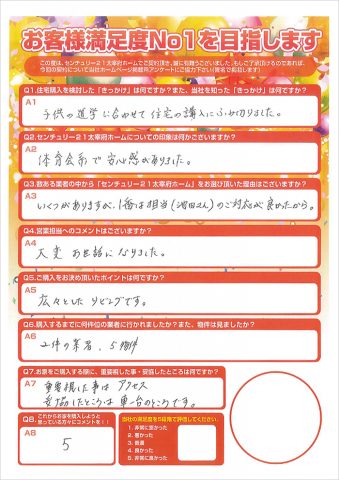 お客様満足度No1を目指します
この度は、センチュリー21太宰府ホームでご契約頂き、誠に有難うございました。もしご了承頂けるのであれば、
今回の契約について当社ホームページ掲載用アンケートにご協力下さい(匿名で掲載します)
Q1.住宅購入を検討した「きっかけ」は何ですか?また、当社を知った「きっかけ」は何ですか?
A1
子供の進学に合わせて住宅の購入にふみ切りました。
Q2.センチュリー21太宰府ホームについての印象は何かございますか?
A2
体育会系で安心感がありました。
Q3.数ある業者の中から「センチュリー21太宰府ホーム」をお選び頂いた理由はございますか?
A3
いくつかありますが、1番は担当(池田さん)のご対応が良かったから。
Q4.営業担当へのコメントはございますか?
A4
大変お世話になりました。
Q5.ご購入をお決め頂いたポイントは何ですか?
A5
広々としたリビングです。
Q6.購入するまでに何件位の業者に行かれましたか?また、物件は見ましたか?
A6
2件の業者、5物件
Q7.お家をご購入する際に、重要視した事・妥協したところは何ですか?
A7
重要視した事はアクセス
妥協したところは車1台のところです。
Q8.
これからお家を購入しようと
思っている方々にコメントを!!
A8
5
当社の満足度を5段階で評価してください。
1. 非常に悪かった
2. 悪かった
3. 普通
4. 良かった
5. 非常に良かった